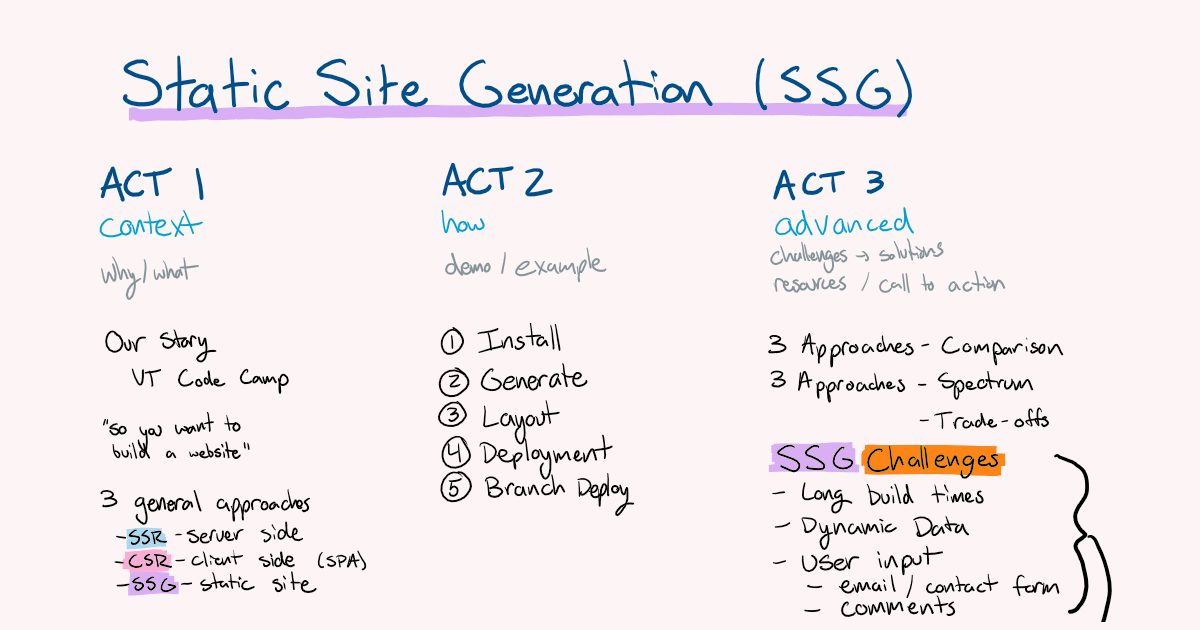 Static Site Generation (SSG)
ACT 1
context
why/what
Our Story
VT Code Camp
"so you want to
build a website"
3 general approaches
- SSR - server side
- CSR - client side (SPA)
- SSG - static site
ACT 2
how
demo / example
① Install
② Generate
③ Layout
④ Deployment
⑤ Branch Deploy
ACT 3
advanced
challenges → solutions
resources / call to action
3 Approaches - Comparison
3 Approaches - Spectrum
- Trade-offs
SSG Challenges
- Long build times
- Dynamic Data
- User input
- email / contact form
- comments